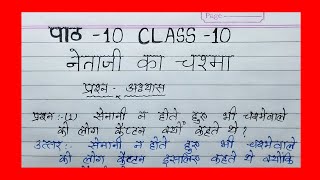 Page:
पाठ -10 CLASS -10
नेताजी का चश्मा
प्रश्न - अभ्यास
प्रश्न:-(1) सेनानी न होते हुए भी चश्मेवाले
को लोग कैप्टन क्यों कहते थे?
उत्तर:- सेनानी न होते हुए भी चश्मेवाले
को लोग कैप्टन इसलिए कहते थे क्योंकि